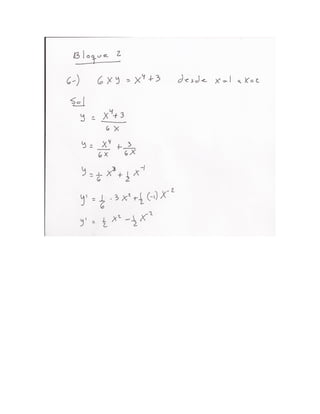 Bloque 2
6-) 6xy = x⁴+3 desde x=1 a x=2
Sol
y = x⁴+3 / 6x
y = x⁴/6x + 3/6x
y = 1/6 x³ + 1/2 x⁻¹
y' = 1/6 · 3x² + 1/2 (-1) x⁻²
y' = 1/2 x² - 1/2 x⁻²